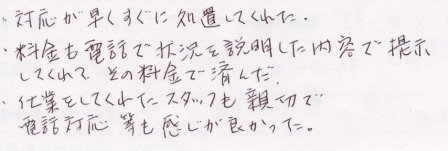 ・対応が早くすぐに処置してくれた.
・料金も電話で状況を説明した内容で提示
してくれて その料金で済んだ.
・仕業をしてくれたスタッフも親切で
電話対応 等も感じが良かった。